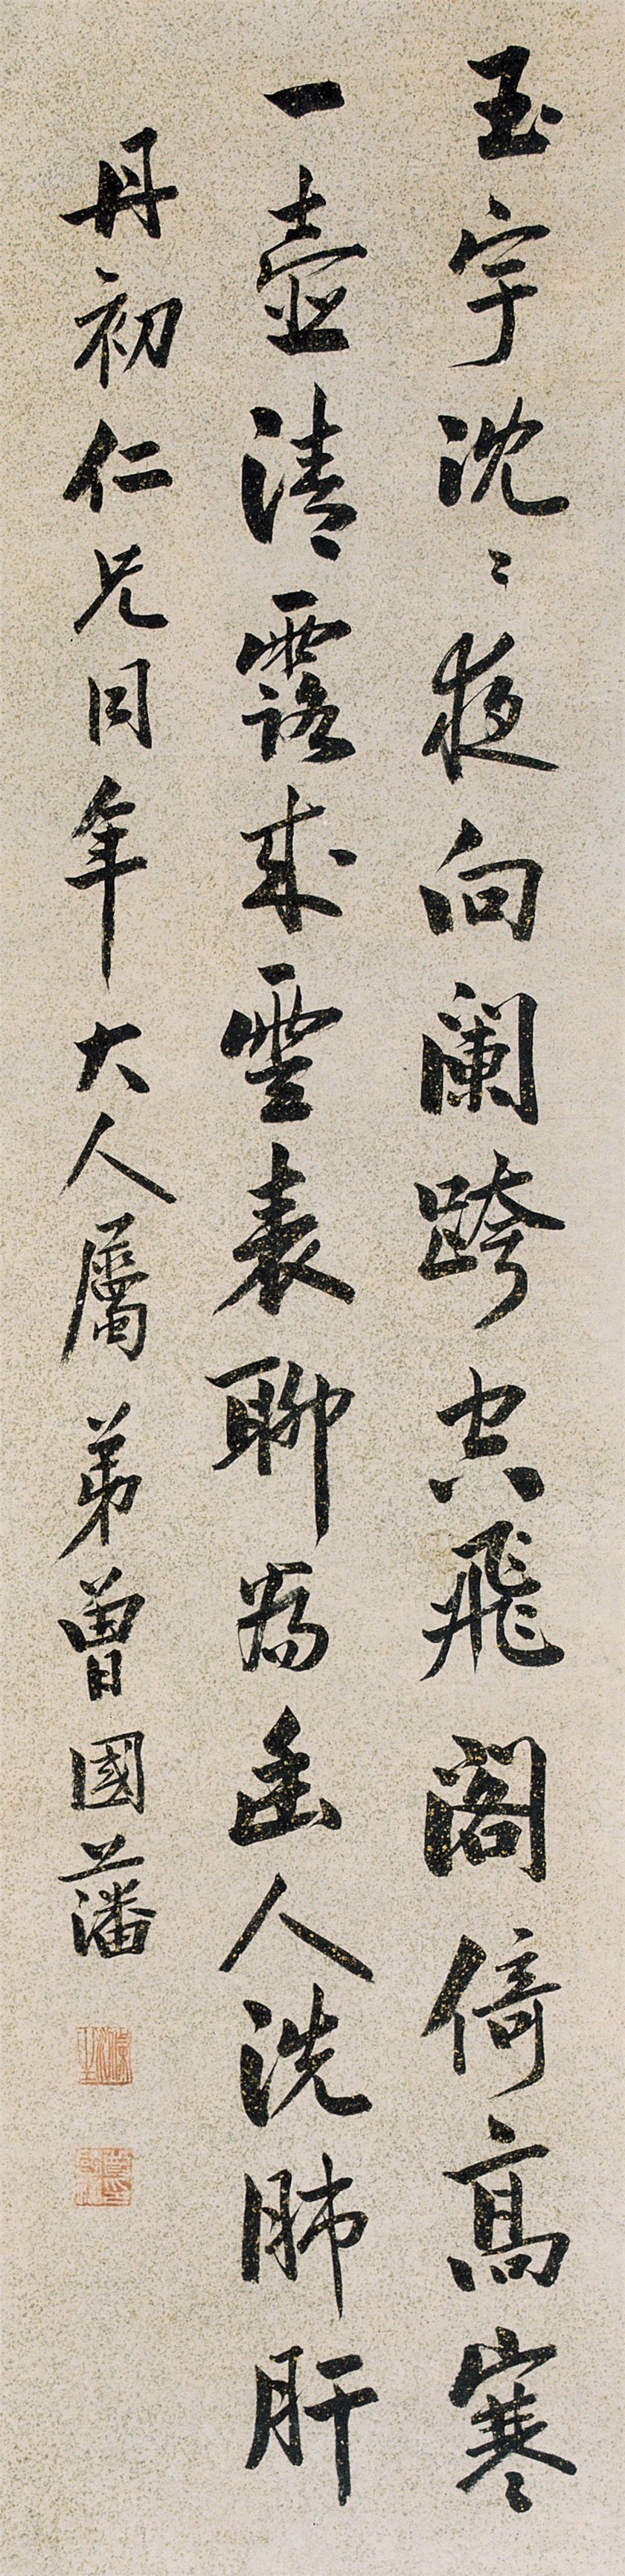 玉宇沈〻夜向闌跨空飛閣倚高寒
一壺清露来雲表聊為幽人洗肺肝
丹初仁兄同年大人屬 弟曾國藩